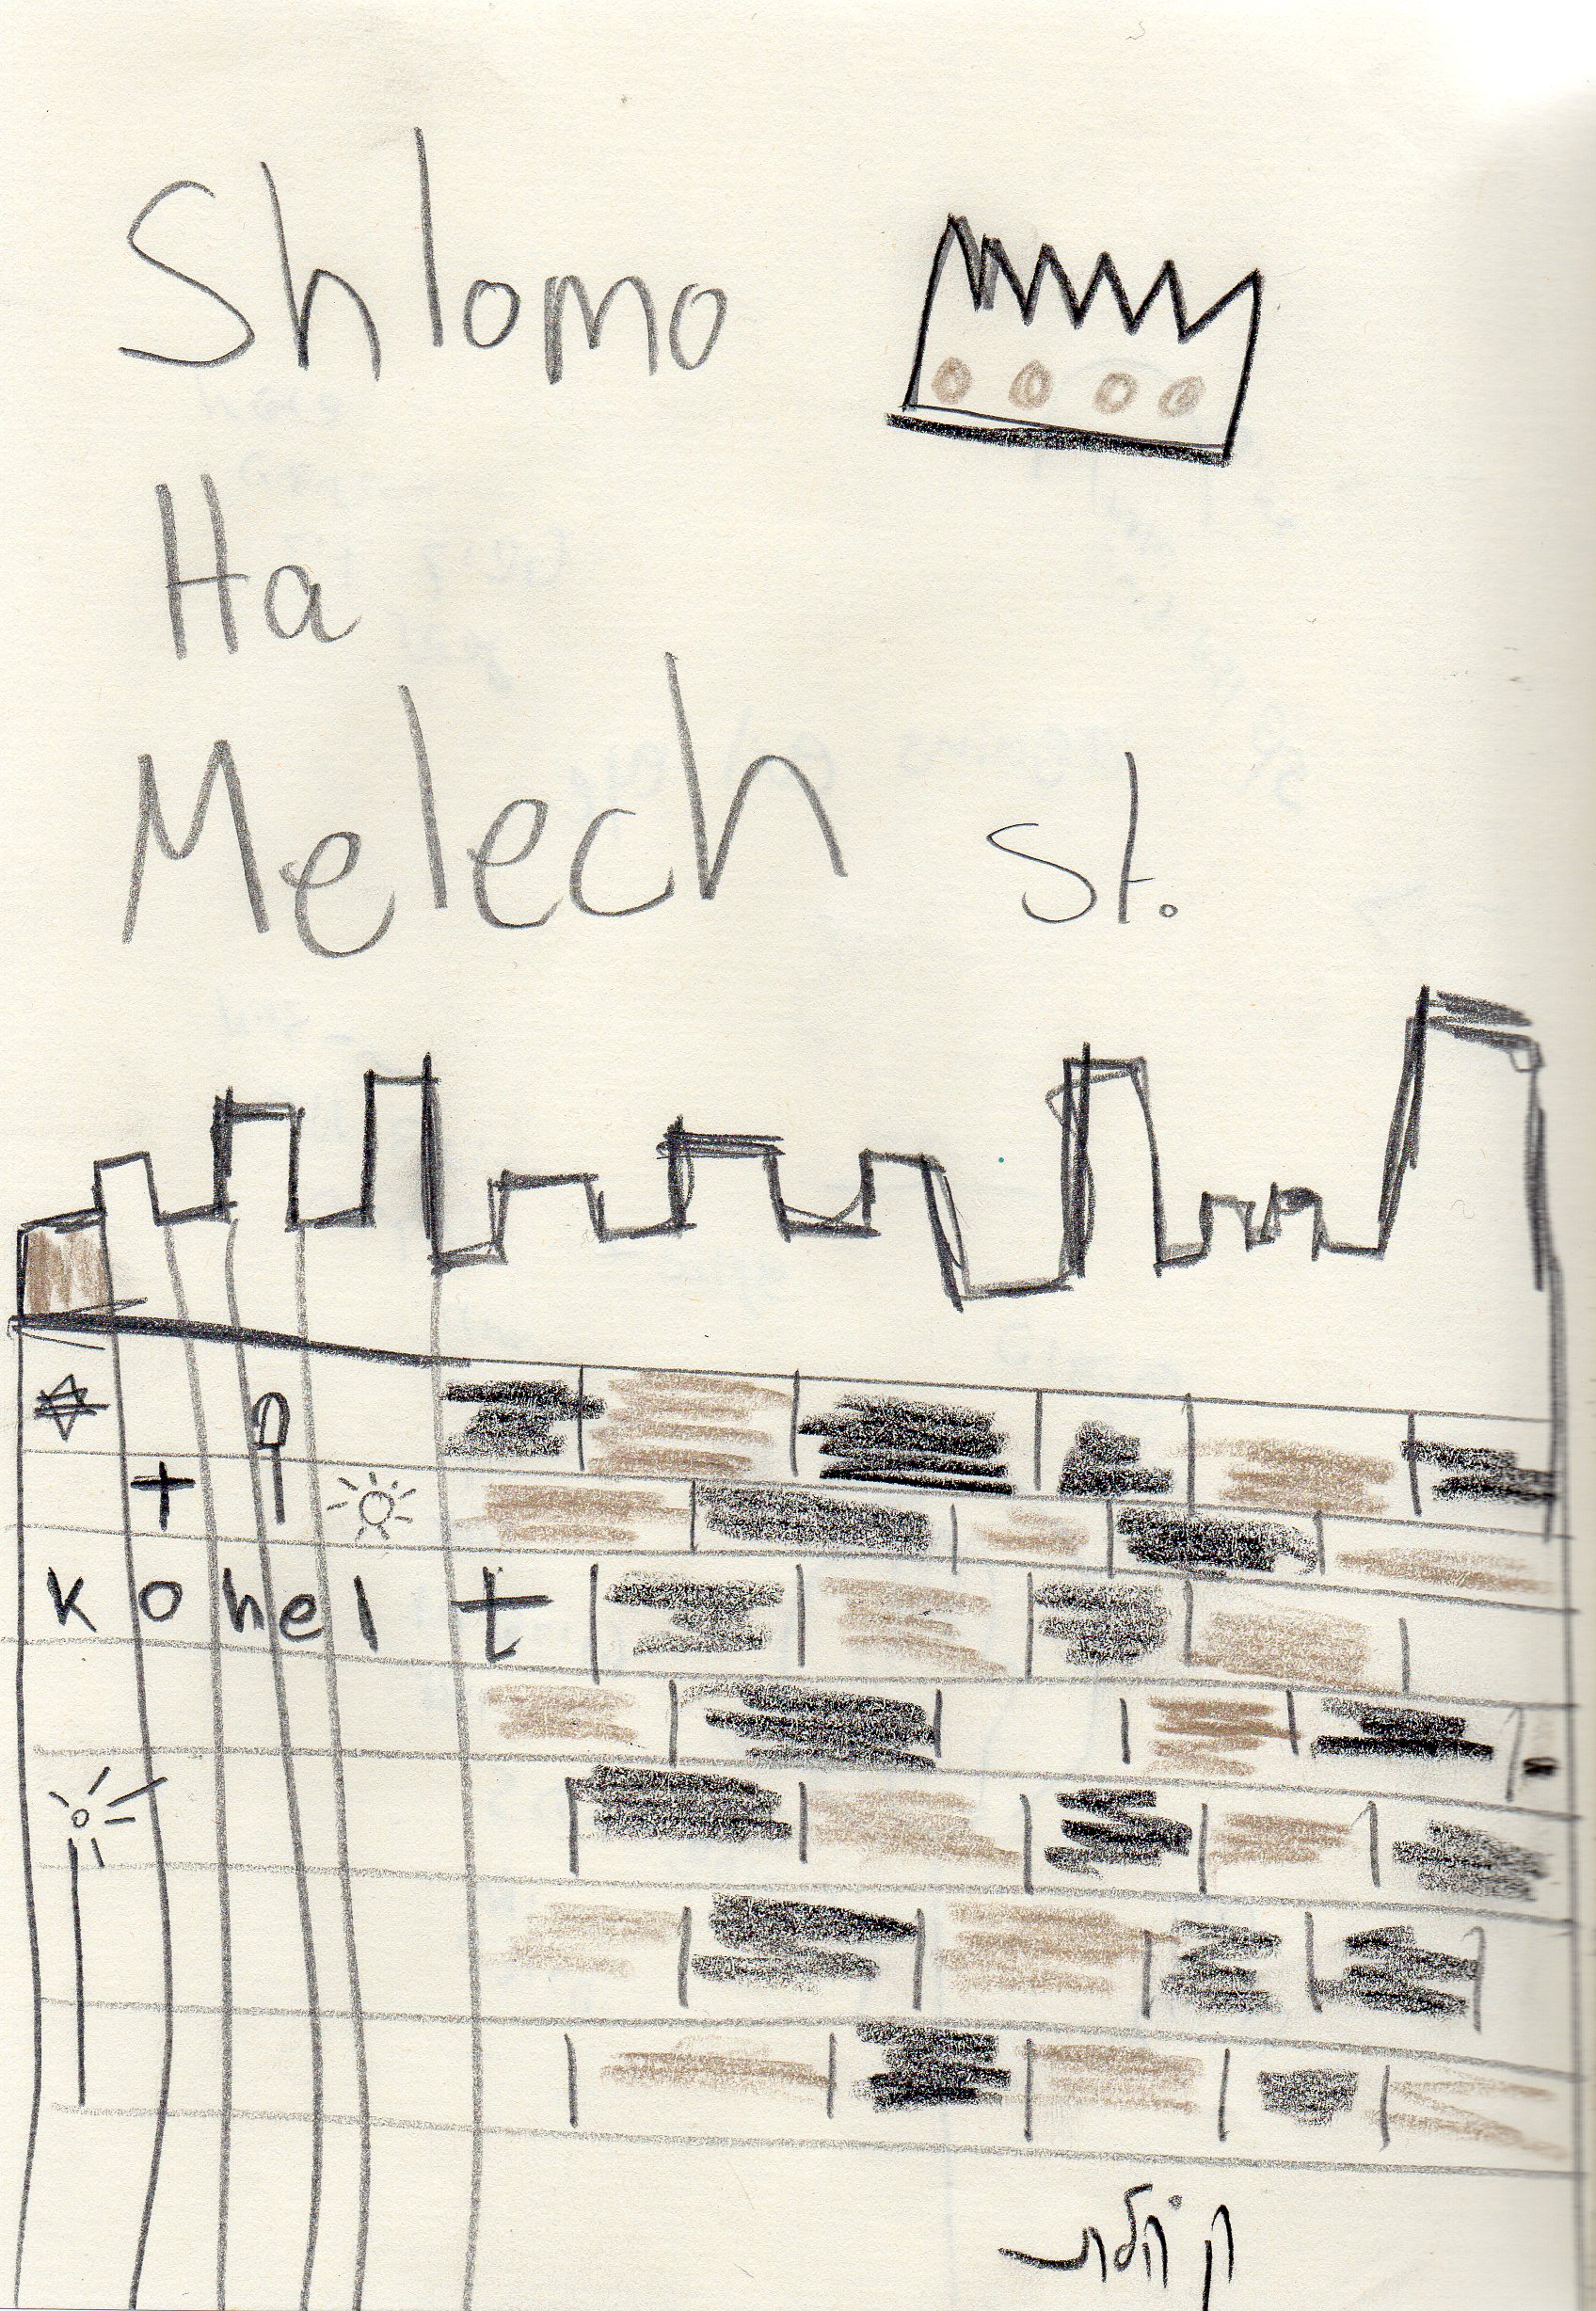 Shlomo
Ha
Melech st.
kohelt
קוהלת